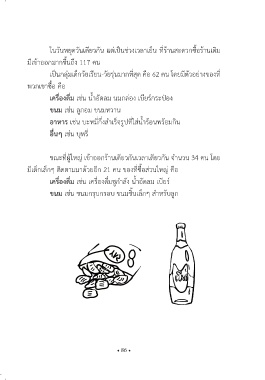 ในวันหยุดวันเดียวกัน แต่เป็นช่วงเวลาเย็น ที่ร้านสะดวกซื้อร้านเดิม
มีเข้าออกมากขึ้นถึง 117 คน
เป็นกลุ่มเด็กวัยเรียน-วัยรุ่นมากที่สุด คือ 62 คน โดยมีตัวอย่างของที่
พวกเขาซื้อ คือ
เครื่องดื่ม เช่น น้ำอัดลม นมกล่อง เบียร์กระป๋อง
ขนม เช่น ลูกอม ขนมหวาน
อาหาร เช่น บะหมี่กึ่งสำเร็จรูปที่ใส่น้ำร้อนพร้อมกิน
อื่นๆ เช่น บุหรี่
ขณะที่ผู้ใหญ่ เข้าออกร้านเดียวกันเวลาเดียวกัน จำนวน 34 คน โดย
มีเด็กเล็กๆ ติดตามมาด้วยอีก 21 คน ของที่ซื้อส่วนใหญ่ คือ
เครื่องดื่ม เช่น เครื่องดื่มชูกำลัง น้ำอัดลม เบียร์
ขนม เช่น ขนมกรุบกรอบ ขนมชิ้นเล็กๆ สำหรับลูก
• 86 •